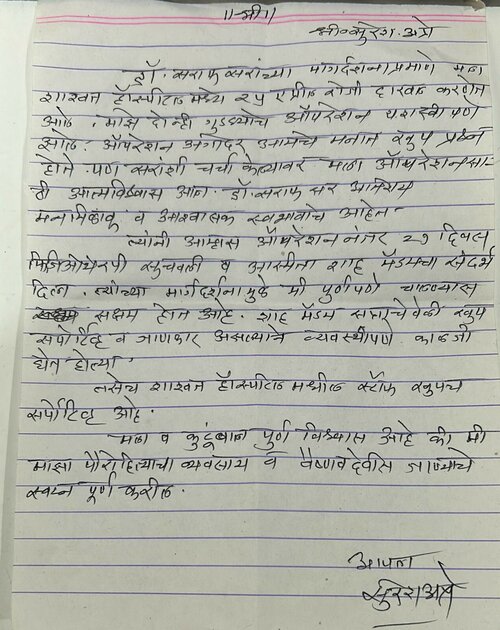 ॥श्री॥
श्री. सुरेश. अत्रे
डॉ. सराफ सरांच्या मार्गदर्शनाप्रमाणे मला
शाश्वत हॉस्पीटल मध्ये २५ एप्रील रोजी दाखल करणेत
आले. माझे दोन्ही गुडघ्याचे ऑपरेशन यशस्वी पणे
झाले. ऑपरेशन अगोदर आमचे मनात खुप प्रश्न
होते. पण सरांशी चर्चा केल्यावर मला ऑपरेशनसा-
ठी आत्मविश्वास आला. डॉ. सराफ सर अतिशय
मनमिळावू व आश्वासक स्वभावाचे आहेत.
त्यांनी आम्हास ऑपरेशन नंतर २१ दिवस
फिजिओथेरपी सुचवली व अस्मीता शाह मॅडमचा संदर्भ
दिला. त्यांच्या मार्गदर्शनामुळे मी पुर्णपणे चालण्यास
सक्षम होत आहे. शाह मॅडम सरावाचेवेळी खुप
सपोर्टिव्ह व जाणकार असल्याने व्यवस्थीपणे काळजी
घेत होत्या.
तसेच शाश्वत हॉस्पिटल मधील स्टॉफ खुपच
सपोर्टिव्ह आहे.
मला व कुटूंबाला पुर्ण विश्वास आहे की मी
माझा पौरोहित्याचा व्यवसाय व वैष्णवदेवीस जाण्याचे
स्वप्न पूर्ण करील.
आपला
सुरेश अत्रे